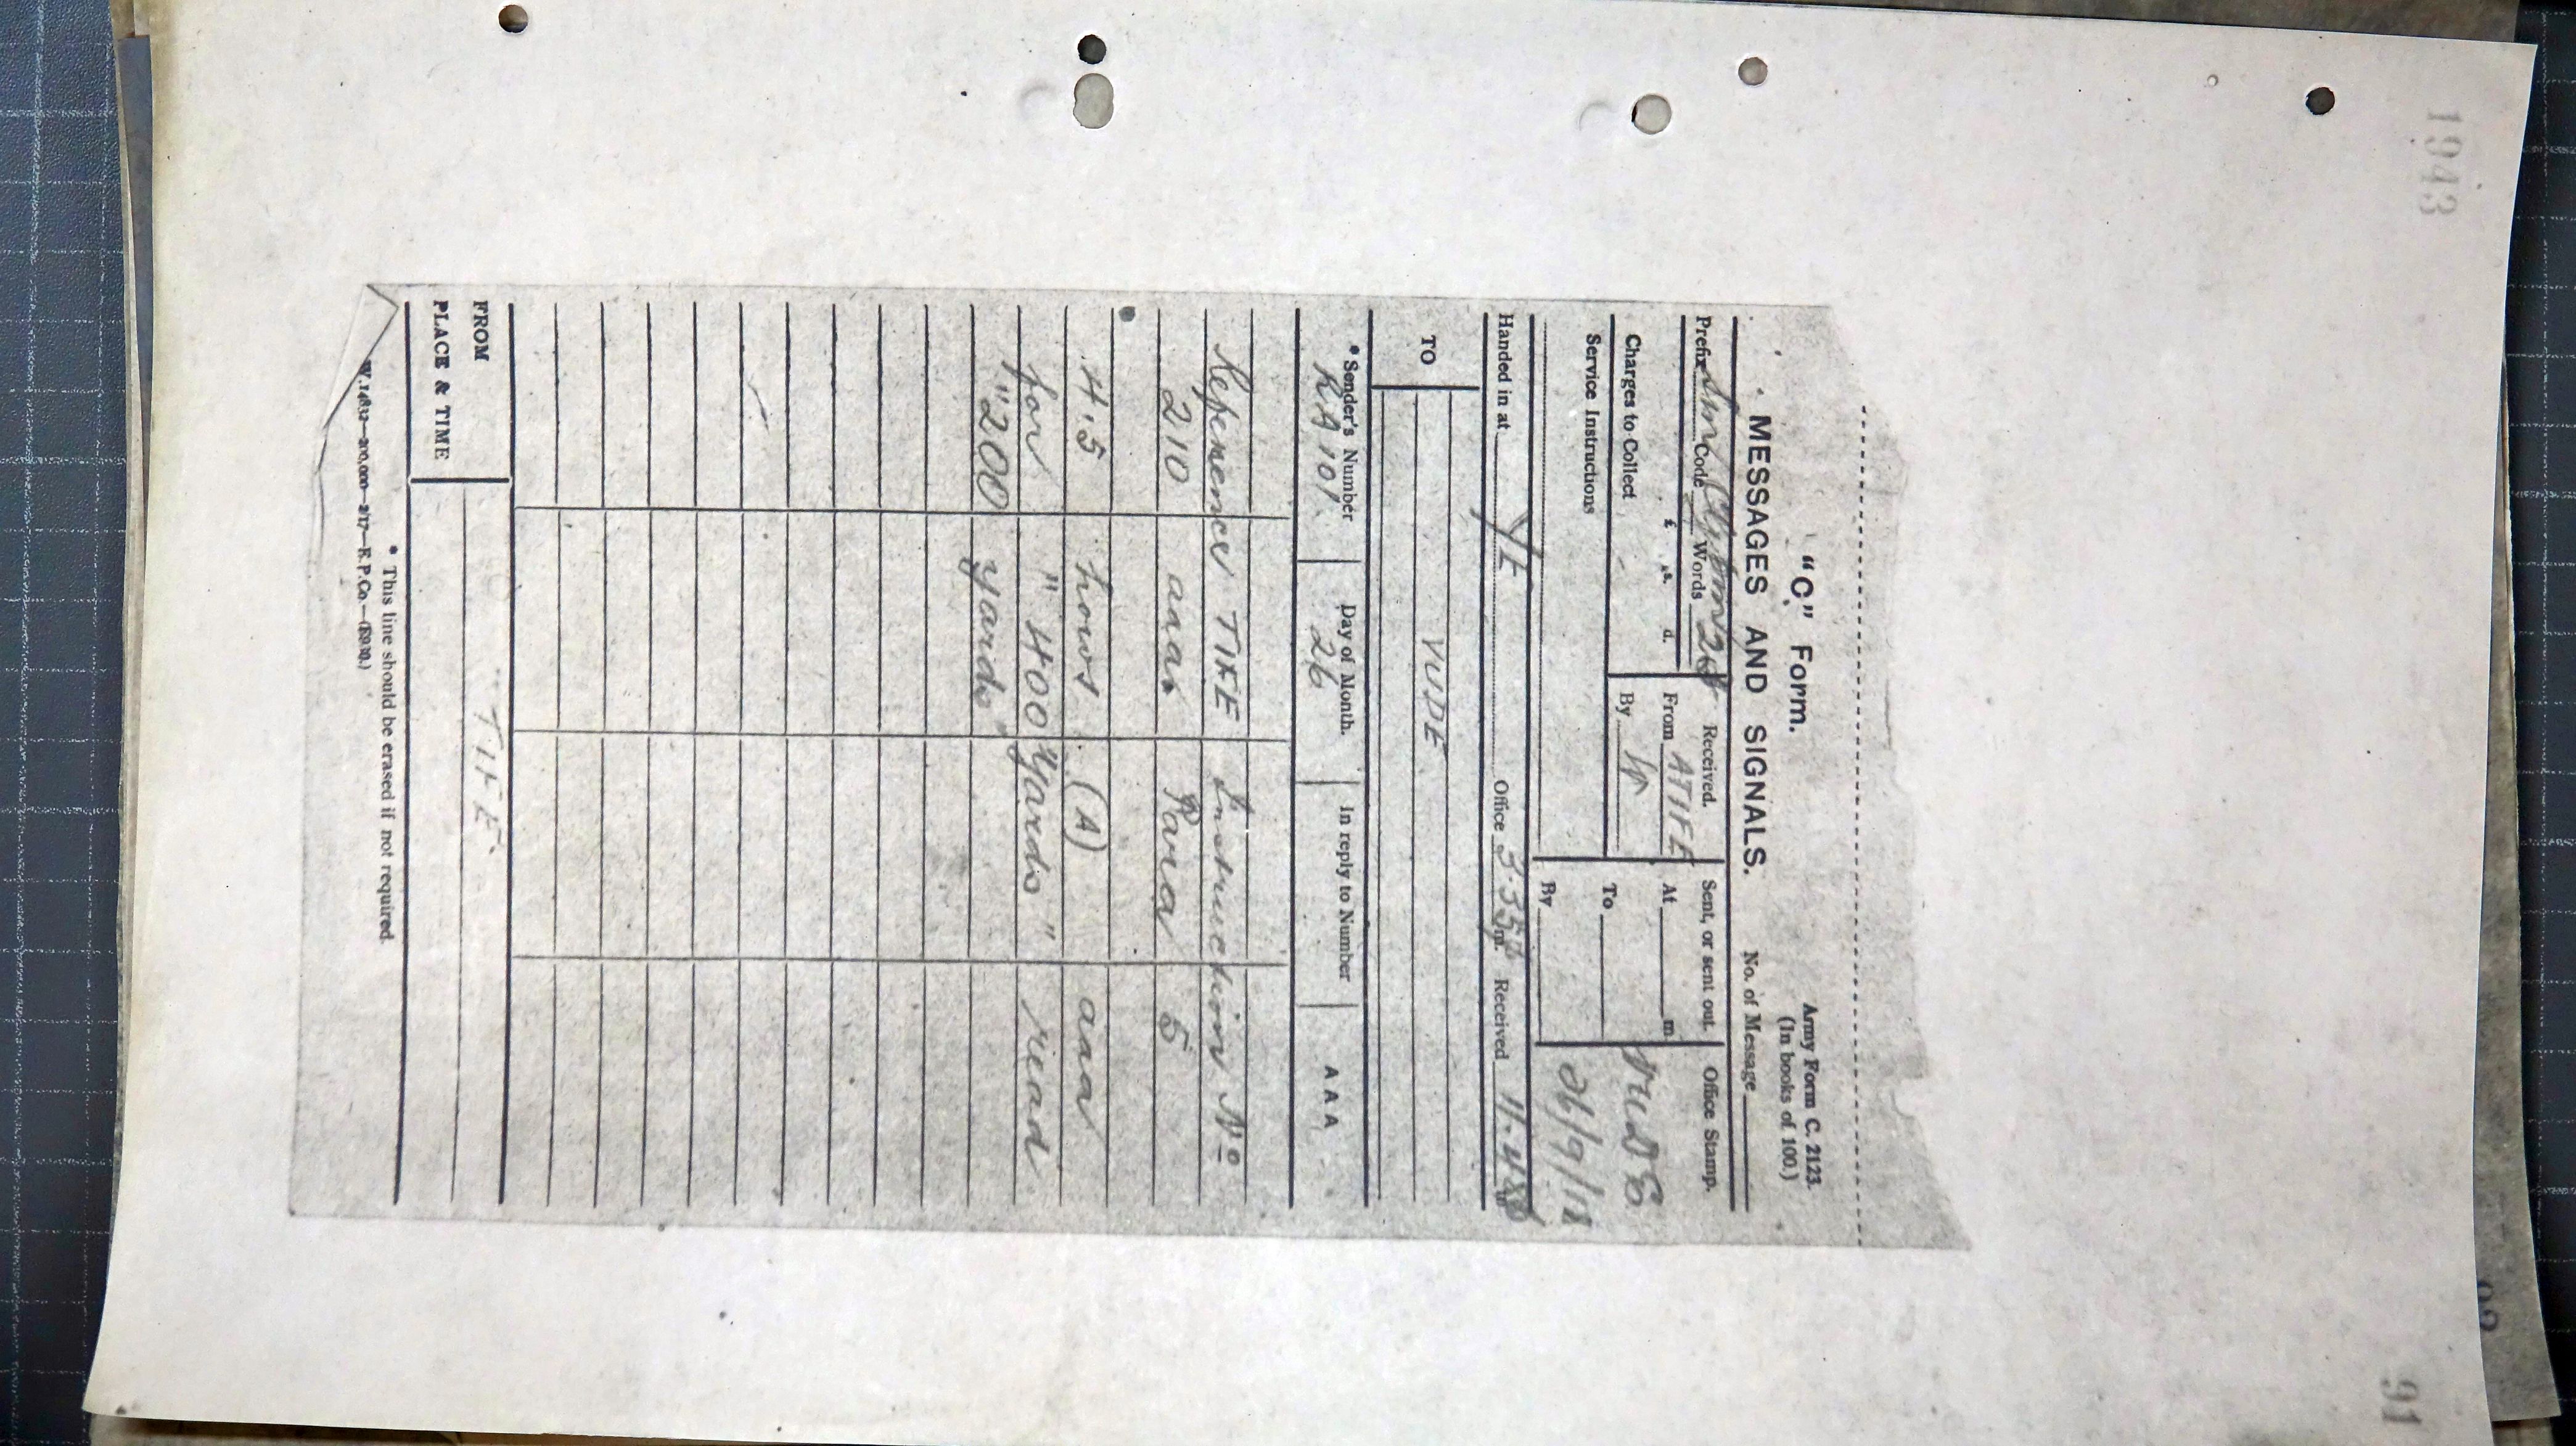 1943
91
"C" Form.
Army Form C. 2123.
(In books of 100.)
MESSAGES AND SIGNALS.
No. of Message
Prefix Sm Code Words 28
Received.
From ATIFE
By
Sent, or sent out.
At m.
To
By
Office Stamp.
VUDE
26/9/18
Charges to Collect
£ s. d.
Service Instructions
Handed in at YE Office 3.35 p m. Received 11.48 p m
TO VUDE
* Sender's Number
RA 101.
Day of Month.
26
In reply to Number
A A A
Reference TIFE Instruction No
210 aaa Para 5
4.5 hows (A) aaa
for "400 yards" read
"2000 yards"
FROM TIFE.
PLACE & TIME
* This line should be erased if not required.
W.14832—200,000—2/17—E.P.Co.